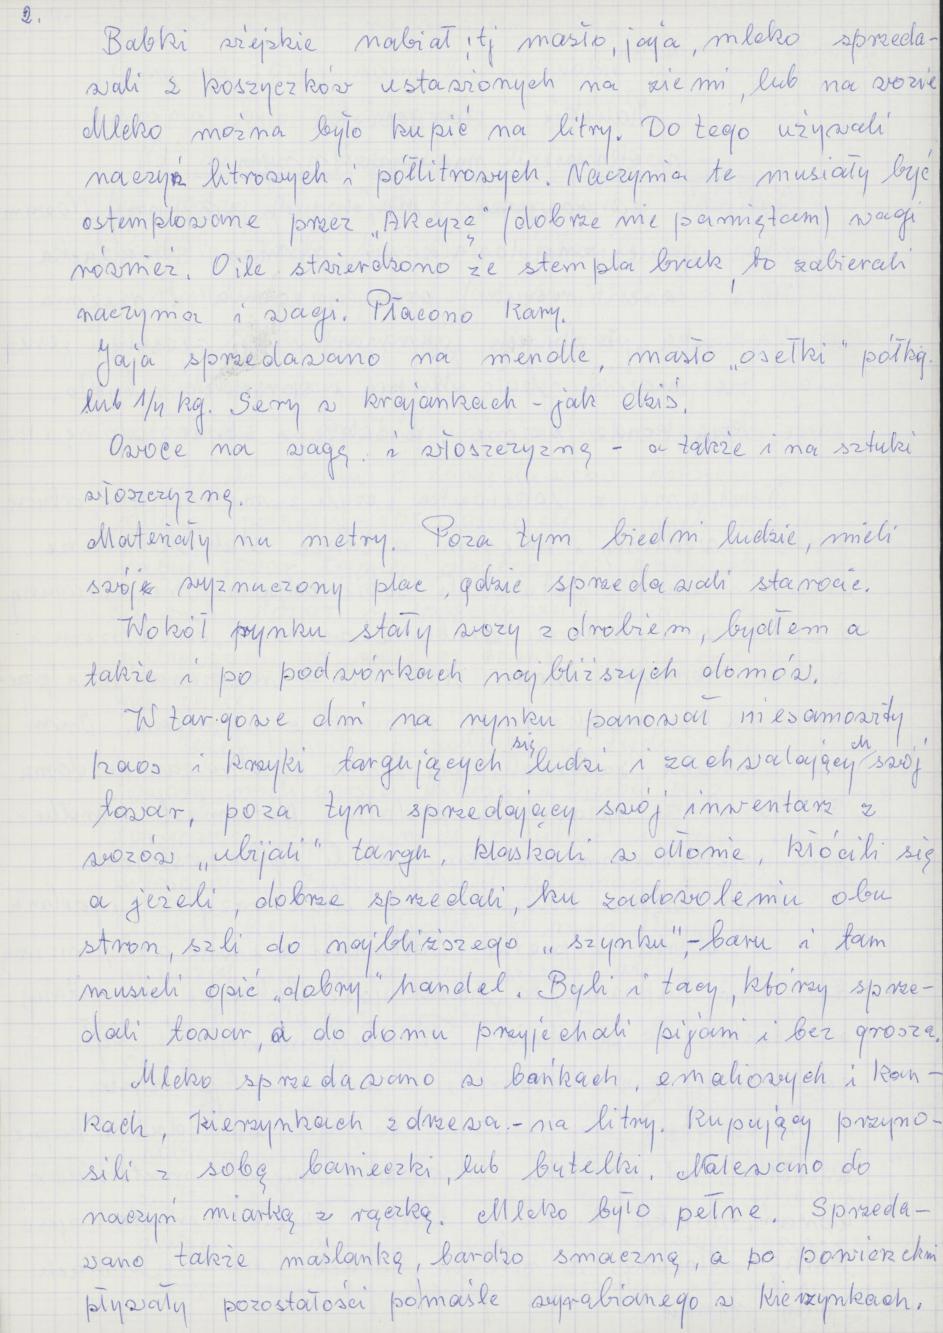 2.
Babki wiejskie nabiał, tj masło, jaja, mleko sprzeda-
wali z koszyczków ustawionych na ziemi, lub na wozie
Mleko można było kupić na litry. Do tego używali
naczyń litrowych i półlitrowych. Naczynia te musiały być
ostemplowane przez „Akcyzę" (dobrze nie pamiętam) wagi
również. O ile stwierdzono że stempla brak, to zabierali
naczynia i wagi. Płacono kary.
Jaja sprzedawano na mendle, masło „osełki" półkg.
lub 1/4 kg. Sery w krajankach - jak dziś.
Owoce na wagę i włoszczyznę - a także i na sztuki
włoszczyznę.
Materiały na metry. Poza tym biedni ludzie, mieli
swój wyznaczony plac, gdzie sprzedawali starocie.
Wokół rynku stały wozy z drobiem, bydłem a
także i po podwórkach najbliższych domów.
W targowe dni na rynku panował niesamowity
haos i krzyki targujących się ludzi i zachwalających swój
towar, poza tym sprzedający swój inwentarz z
wozów „ubijali" targu, klaskali w dłonie, kłócili się
a jeżeli, dobrze sprzedali, ku zadowoleniu obu
stron, szli do najbliższego „szynku",-baru i tam
musieli opić „dobry" handel. Byli i tacy, którzy sprze-
dali towar, a do domu przyjechali pijani i bez grosza.
Mleko sprzedawano w bańkach, emaliowych i kan-
kach, kierzynkach z drzewa.-na litry. Kupujący przyno-
sili z sobą banieczki, lub butelki. Nalewano do
naczyń miarką z rączką. Mleko było pełne. Sprzeda-
wano także maślankę, bardzo smaczną, a po powierzchni
pływały pozostałości pomaśle wyrabianego w kierzynkach.